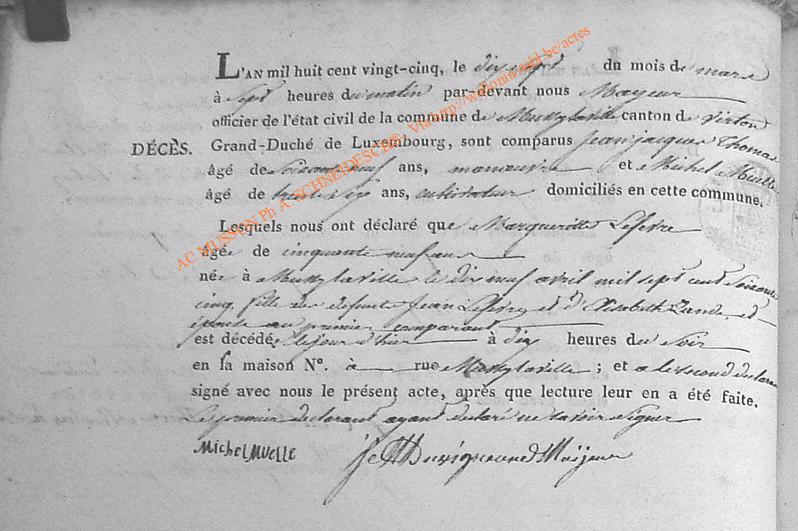 L'AN mil huit cent vingt-cinq, le dix sept du mois de mars
à sept heures du matin par-devant nous Mayeur
officier de l'état civil de la commune de Mussylaville canton de Virton
DÉCÈS. Grand-Duché de Luxembourg, sont comparus Jean jacques Thomas
âgé de soixante neuf ans, manœuvre et Michel Muelle
âgé de ans, cultivateur domiciliés en cette commune.
Lesquels nous ont déclaré que Margueritte Lefevre
âgée de cinquante neuf ans
née à Mussylaville le dix neuf avril mil sept cent soixante
cinq, fille des defunts Jean Lefevre et d'Elisabeth et
épouse au premier comparant
est décédée le jour d'hier à dix heures du soir
en sa maison N°. à rue Mussylaville ; et a le second declarant
signé avec nous le présent acte, après que lecture leur en a été faite.
Le premier declarant ayant declaré ne savoir signer
Michel MUELLE Maijeur
AC MUSSON Ph A. SCHNEIDESCH©. Via http://wallonia-asbl.be/actes